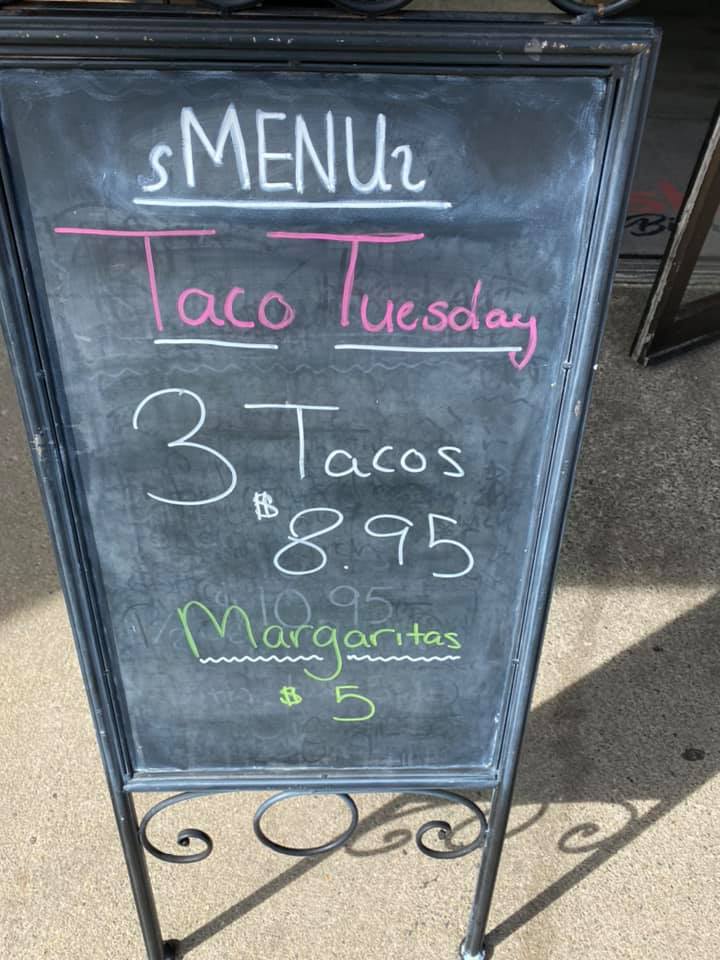 MENU
Taco Tuesday
3 Tacos
$8.95
10.95
Margaritas
$5